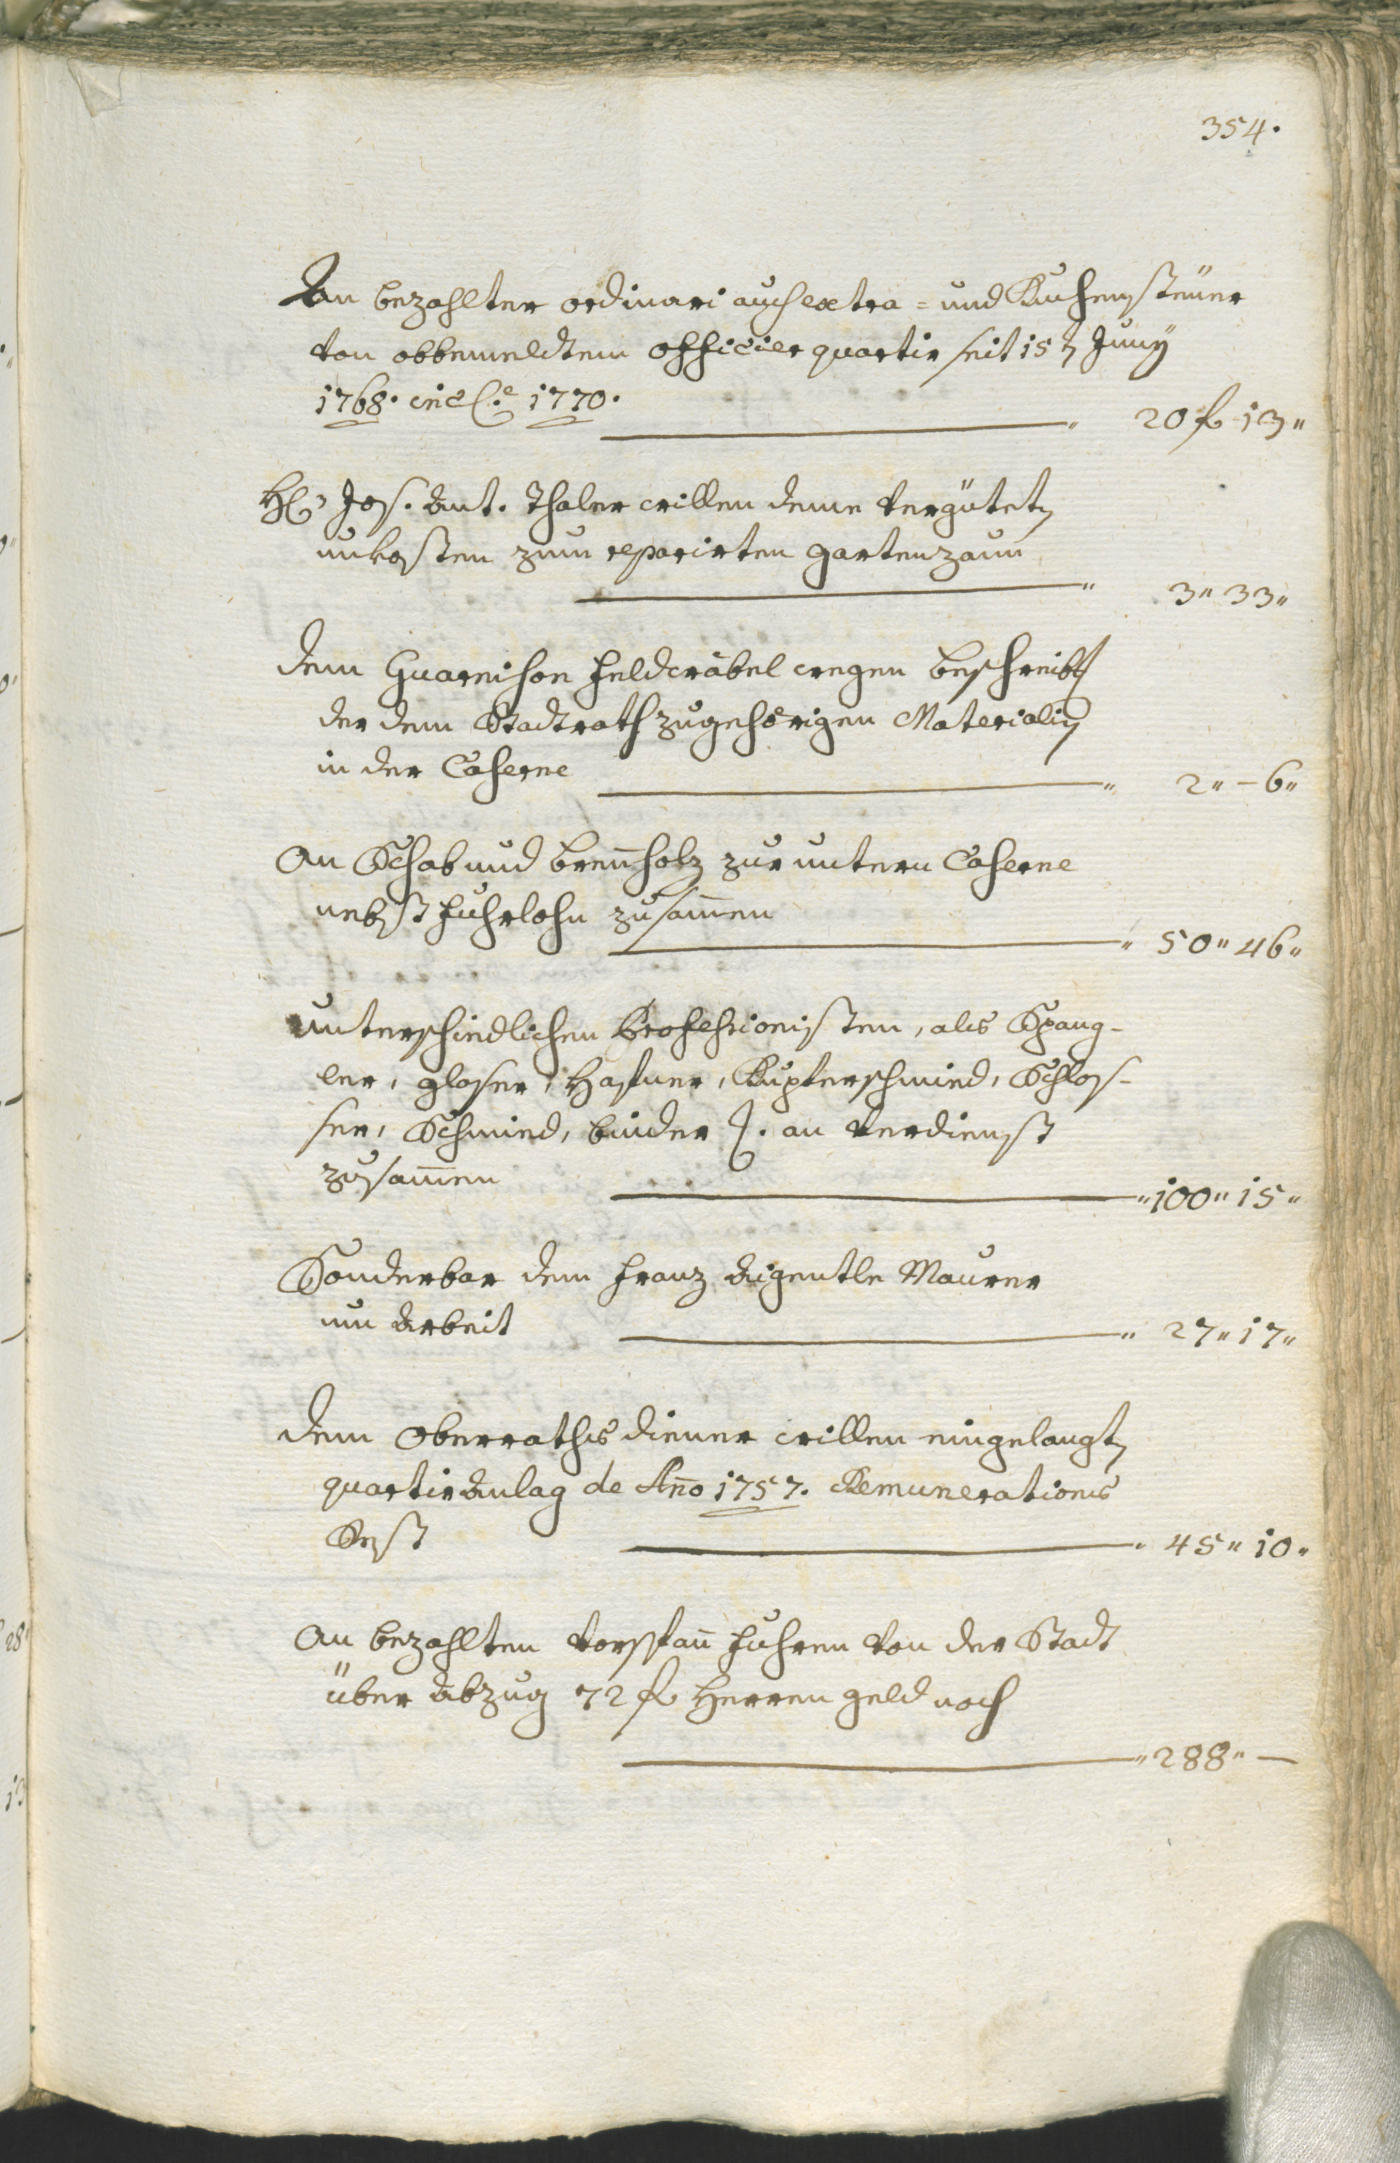 354.
An bezahlter ordinari auch extra- und Kuchensteuer
von obbemeldtem Officier quartir seit 15ten Juny
1768. incl.e 1770. 20 f 13"
Hl. Jos. Ant. Thaler willen deme vergüteten
unkosten zum reparirten gartenzaun
3" 33"
dem Guarnison Feldwäbel wegen beschreibung
der dem Stadtrath zugehörigen Materialien
in der Caserne 2" - 6"
An Schab und brennholz zur untern Caserne
nebst Fuhrlohn zusammen
50" 46"
Unterschiedlichen Professionisten, als Spang-
ler, glaser, Hafner, Kupferschmied, Schlos-
ser, Schmied, binder etc. an Verdienst
zusammen 100" 15"
Sonderbar dem Franz Aigentle Maurer
um Arbeit 27" 17"
dem Oberraths diener willen eingelangten
quartir Anlag de Anno 1757. Remunerations
Rest 45" 10"
An bezahlten Vorspann Fuhren von der Stadt
über Abzug 72 f Herren geld noch
288" —
28